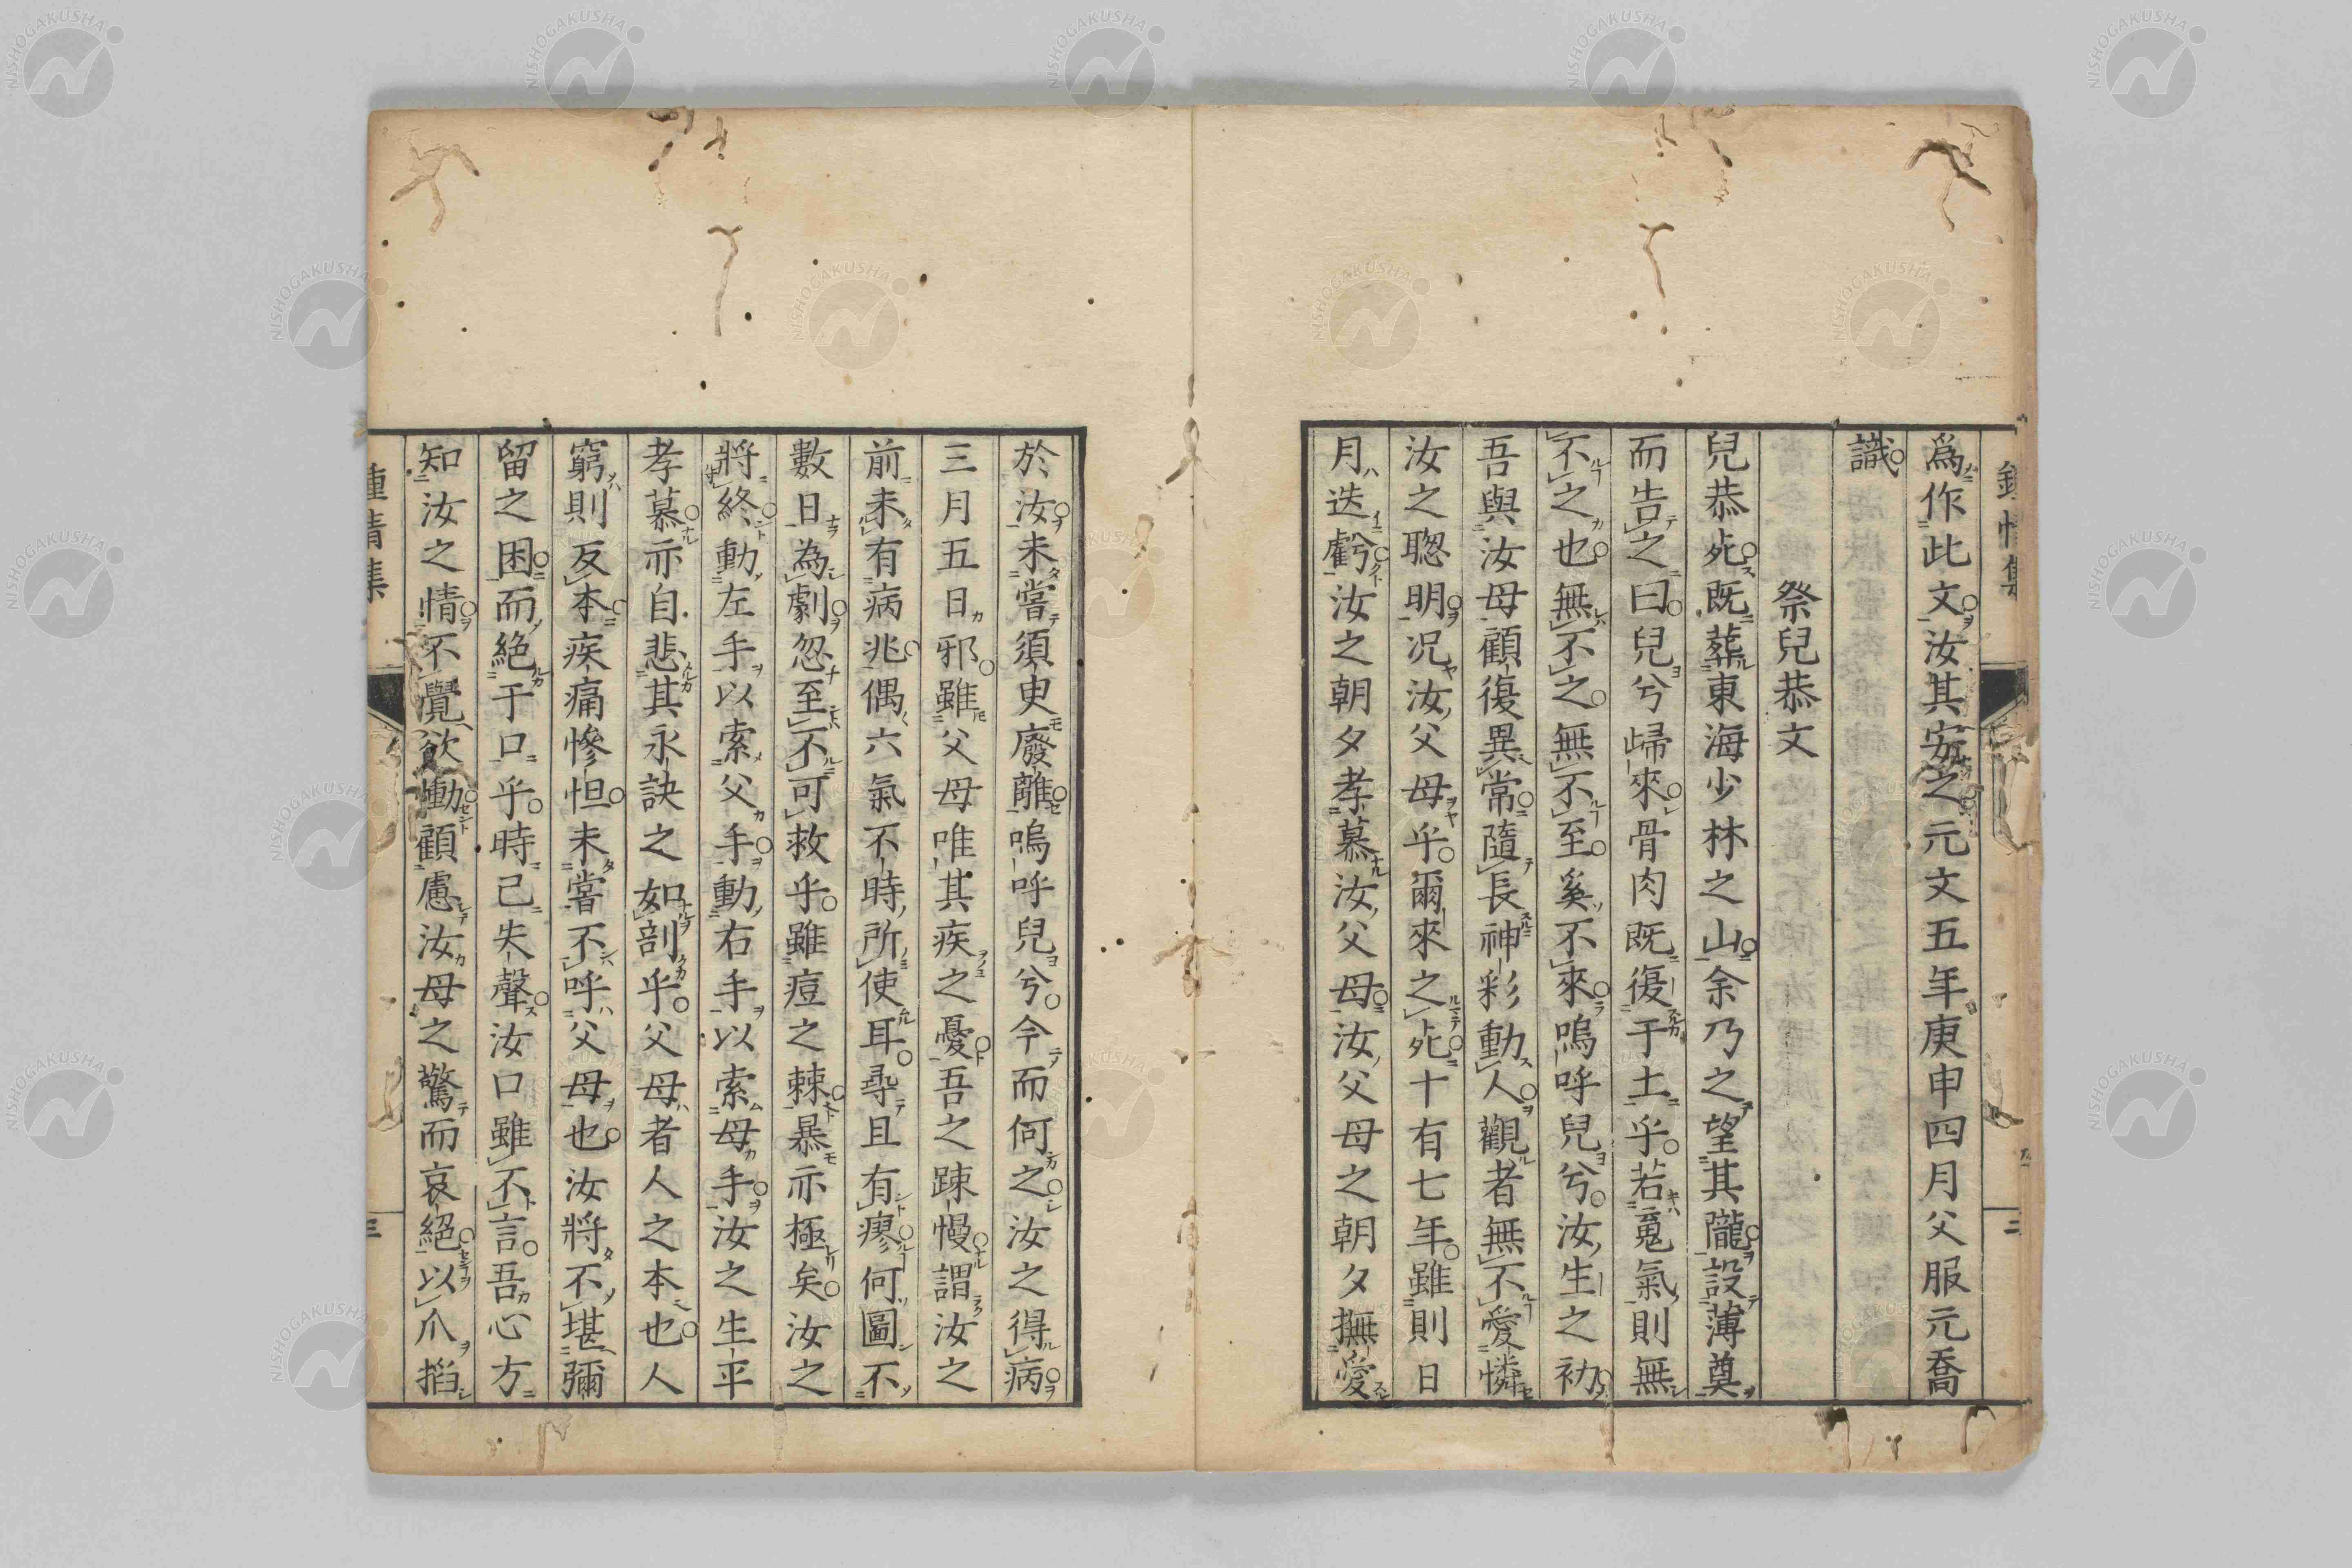 爲作此文汝其安之元文五年庚申四月父服元喬
識
祭兒恭文
兒恭死既葬東海少林之山余乃之望其隴設薄奠
而告之曰兒兮歸來骨肉既復于土乎若䰟氣則無
不之也無不之無不至奚不來嗚呼兒兮汝生之初
吾與汝母顧復異常隨長神彩動人觀者無不愛憐
汝之聦明况汝父母乎爾來之死十有七年雖則日
月迭虧汝之朝夕孝慕汝父母汝父母之朝夕撫愛
於汝未嘗須臾廢離嗚呼兒兮今而何之汝之得病
三月五日邪雖父母唯其疾之憂吾之踈慢謂汝之
前未有病兆偶六氣不時所使耳尋且有瘳何圖不
數日為劇忽至不可救乎雖痘之棘暴亦極矣汝之
將終動左手以索父手動右手以索母手汝之生平
孝慕亦自悲其永訣之如剖乎父母者人之本也人
窮則反本疾痛慘怛未嘗不呼父母也汝將不堪彌
留之困而絕于口乎時已失聲汝口雖不言吾心方
知汝之情不覺欲慟顧慮汝母之驚而哀絕以爪搯
鍾情集
二
鍾情集
三
NISHOGAKUSHA